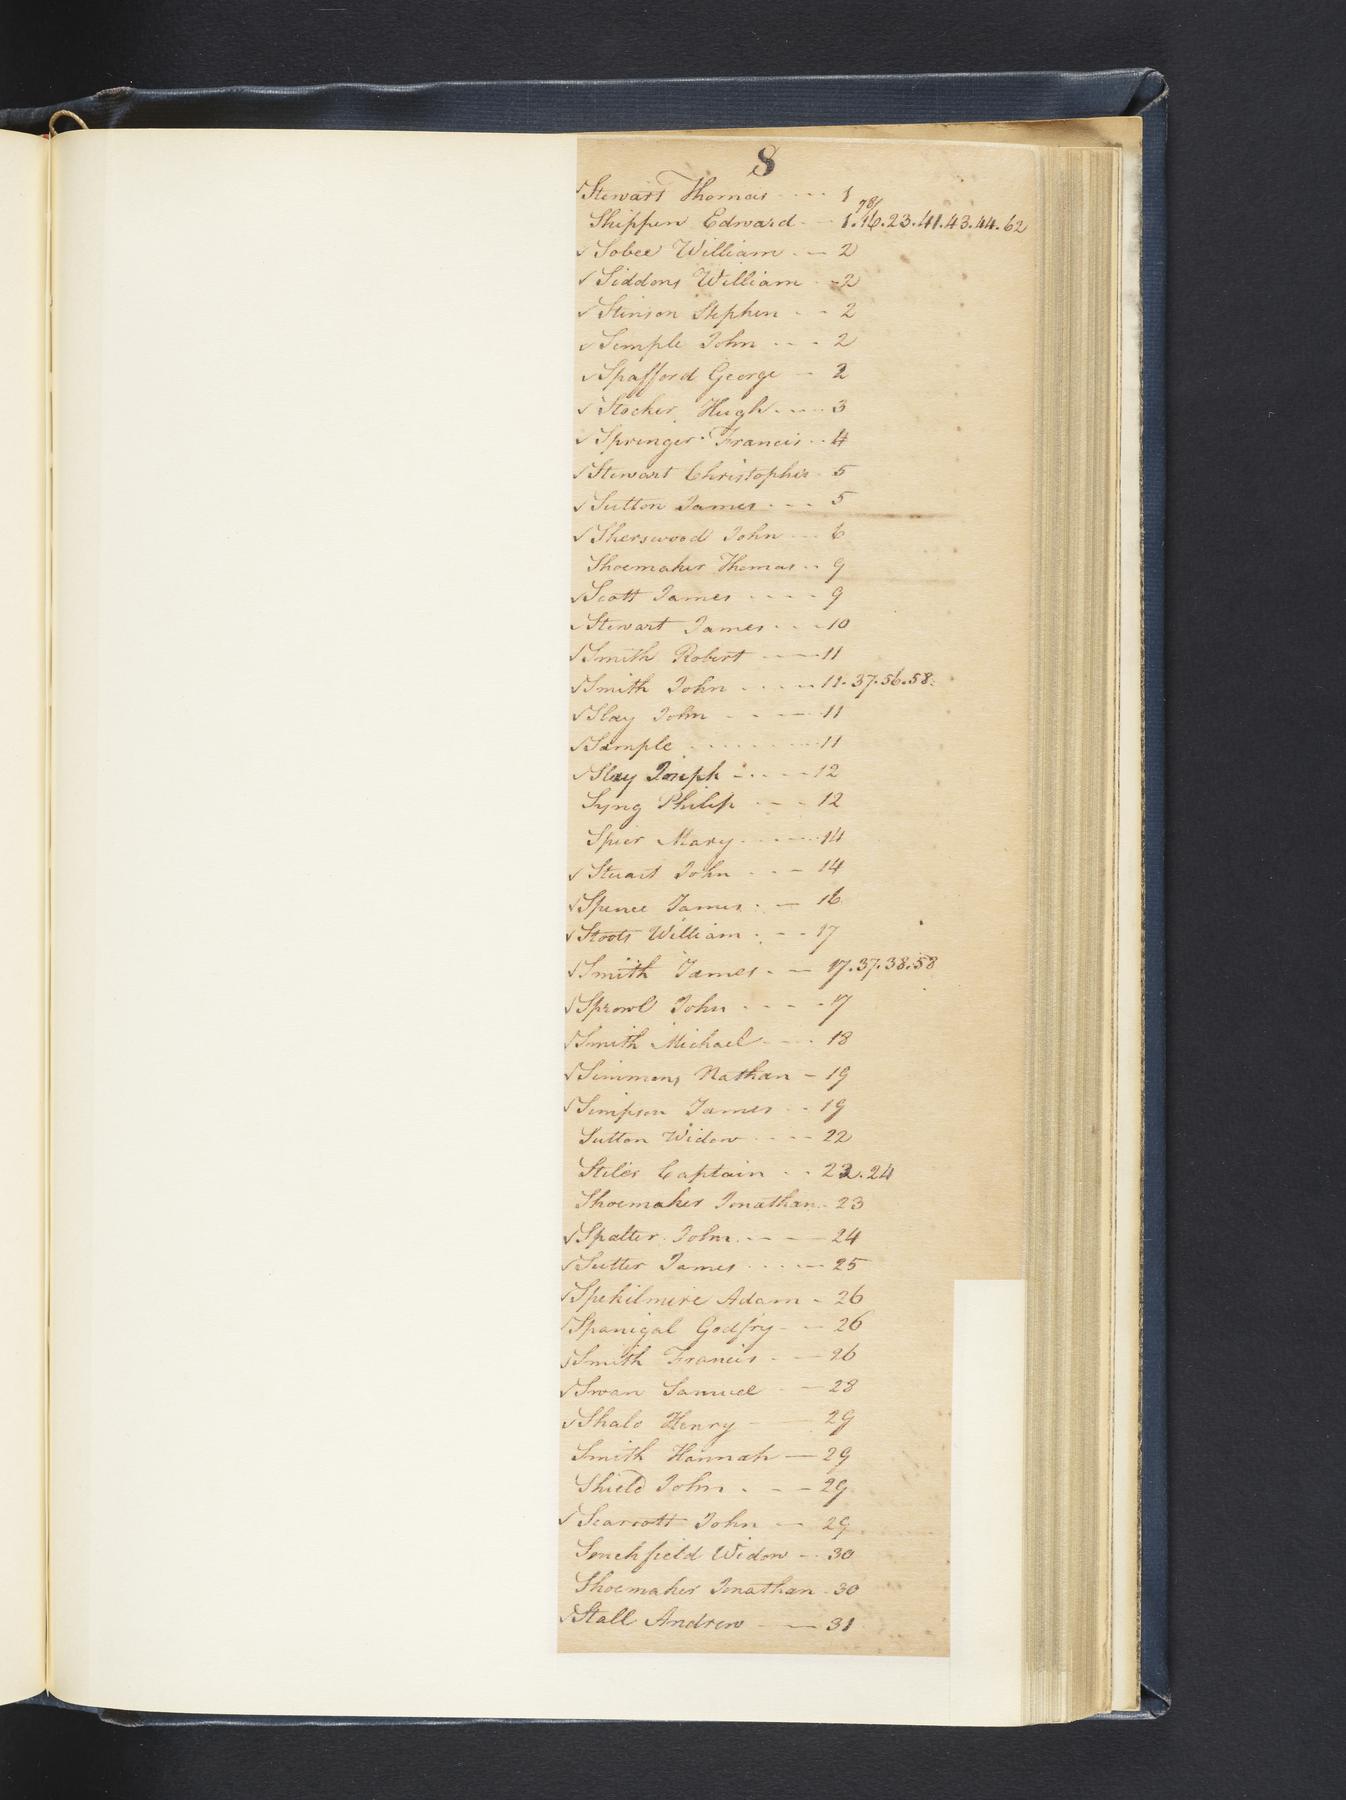 S
✓Stewart Thomas ---- 1
78/
Shippen Edward -- 1.16.23.41.43.44.62
✓Sobee William -- 2
✓Siddons William - 2
✓Stinson Stephen -- 2
✓Semple John --- 2
✓Spafford George - 2
✓Stocker Hugh ---- 3
✓Springer Francis -- 4
✓Stewart Christopher - 5
✓Sutton James --- 5
✓Sherswood John --- 6
Shoemaker Thomas -- 9
✓Scott James ---- 9
✓Stewart James --- 10
✓Smith Robert --- 11
✓Smith John ---- 11.37.56.58.
✓Slay John ---- 11
✓Sample ------- 11
✓Slay Joseph ---- 12
Syng Philip --- 12
Spier Mary ---- 14
✓Stuart John --- 14
✓Spence James -- 16
✓Stoots William --- 17
✓Smith James -- 17.37.38.58
✓Sprowl John ---- 17
✓Smith Michael --- 18
✓Simmons Nathan - 19
✓Simpson James -- 19
Sutton Widow ---- 22
Stiles Captain -- 22.24
Shoemaker Jonathan - 23
✓Spatter John --- 24
✓Sutter James ---- 25
✓Spekilmire Adam - 26
✓Spanigal Godfry -- 26
✓Smith Francis -- 26
✓Swan Samuel -- 28
✓Shalo Henry -- 29
Smith Hannah - 29
Shield John --- 29
✓Scarrott John -- 29
Senchfield Widow -- 30
Shoemaker Jonathan - 30
✓Stall Andrew -- 31